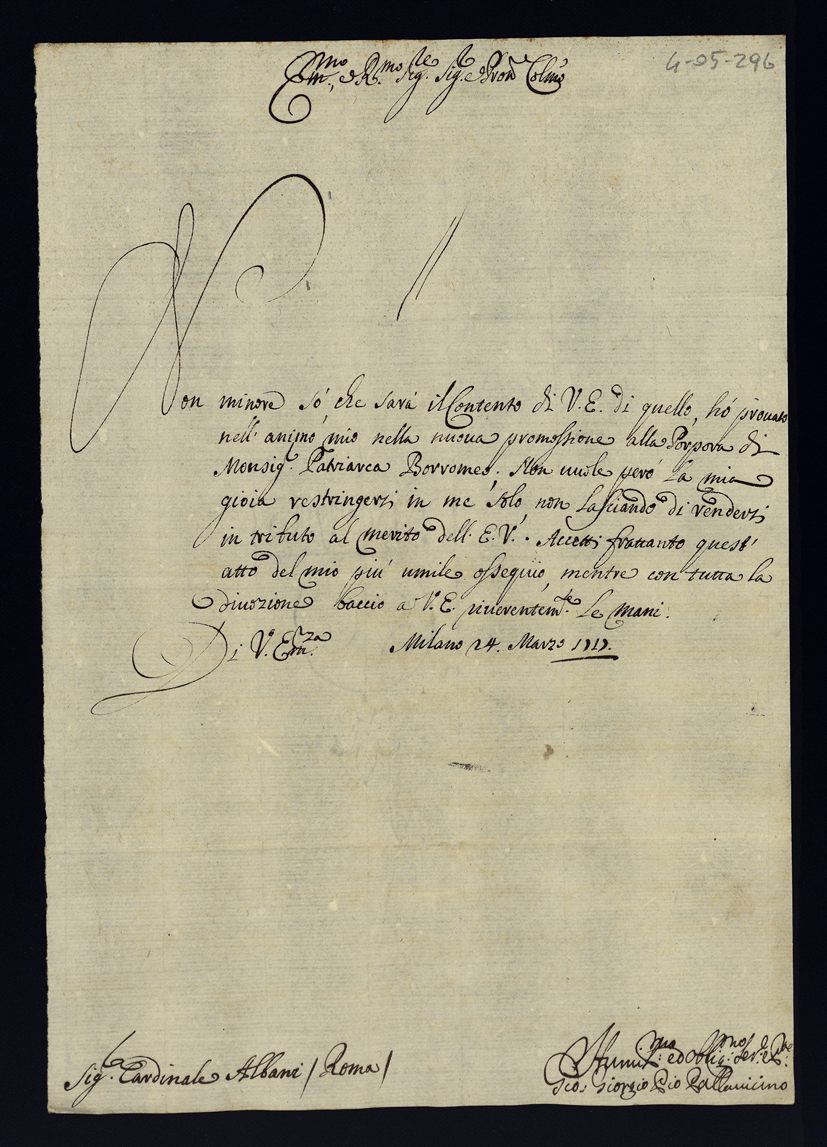 4-05-296
Em.mo e R.mo Sig.re Sig.r e Pron. Colmo
Non minore sò che sarà il Contento di V.E. di quello, hò prouato
nell' animo mio nella nuoua promossione alla Porpora di
Monsig.r Patriarca Borromeo. Non uuole però la mia
gioia restringersi in me solo non lasciando di rendersi
in tributo al merito dell' E.V. Accetti frattanto quest'
atto del mio più umile ossequio, mentre con tutta la
diuozione baccio a V.E. riuerentem.te le mani.
Di V. Em.za Milano 24. Marzo 1717.
Sig.r Cardinale Albani / Roma /
Humil.mo ed Oblig.mo Ser.e
Gio. Giorgio Pio Pallauicino